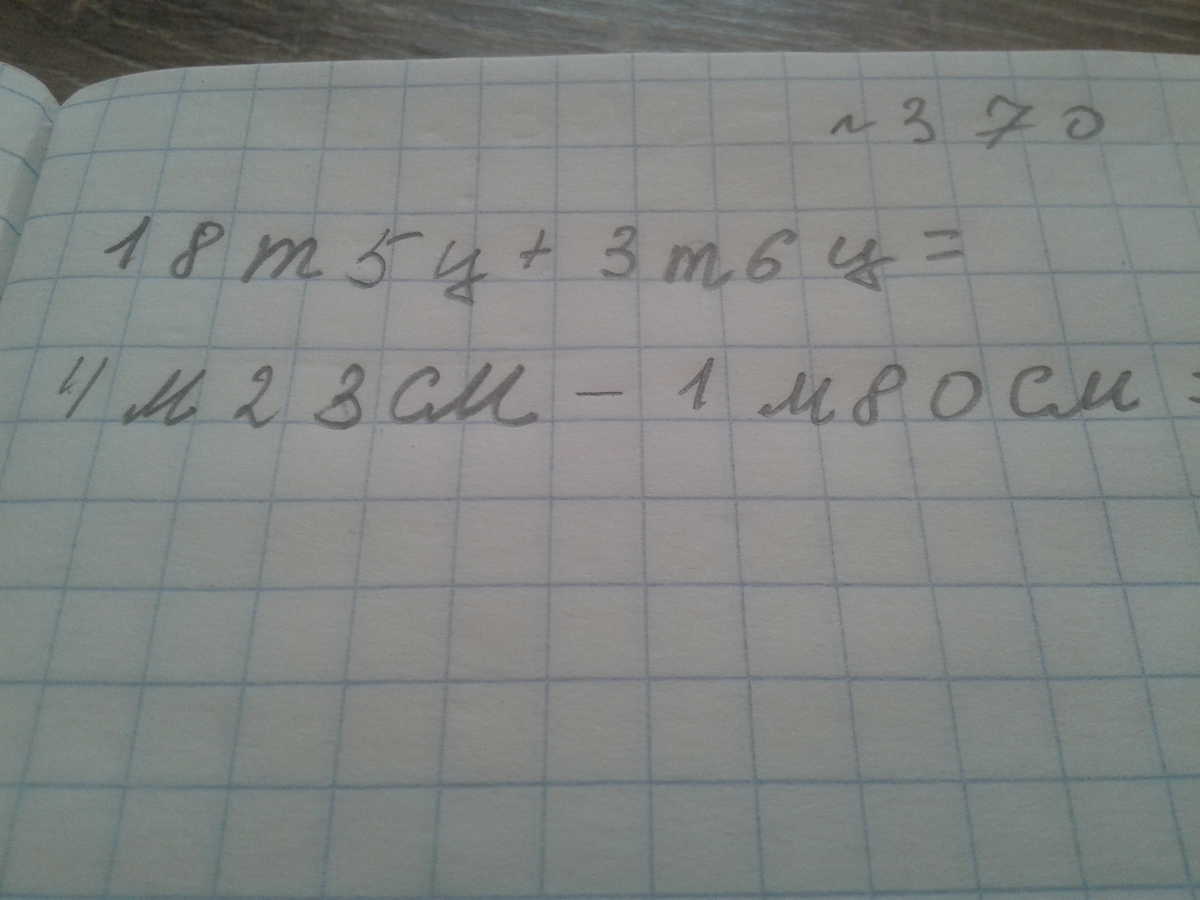 ~370
18т5ц+3т6ц=
4м23см-1м80см=